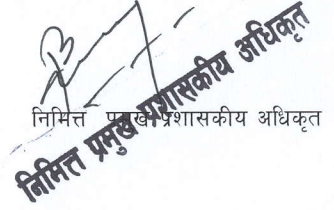 निमित्त प्रमुख प्रशासकीय अधिकृत
निमित्त प्रमुख प्रशासकीय अधिकृत